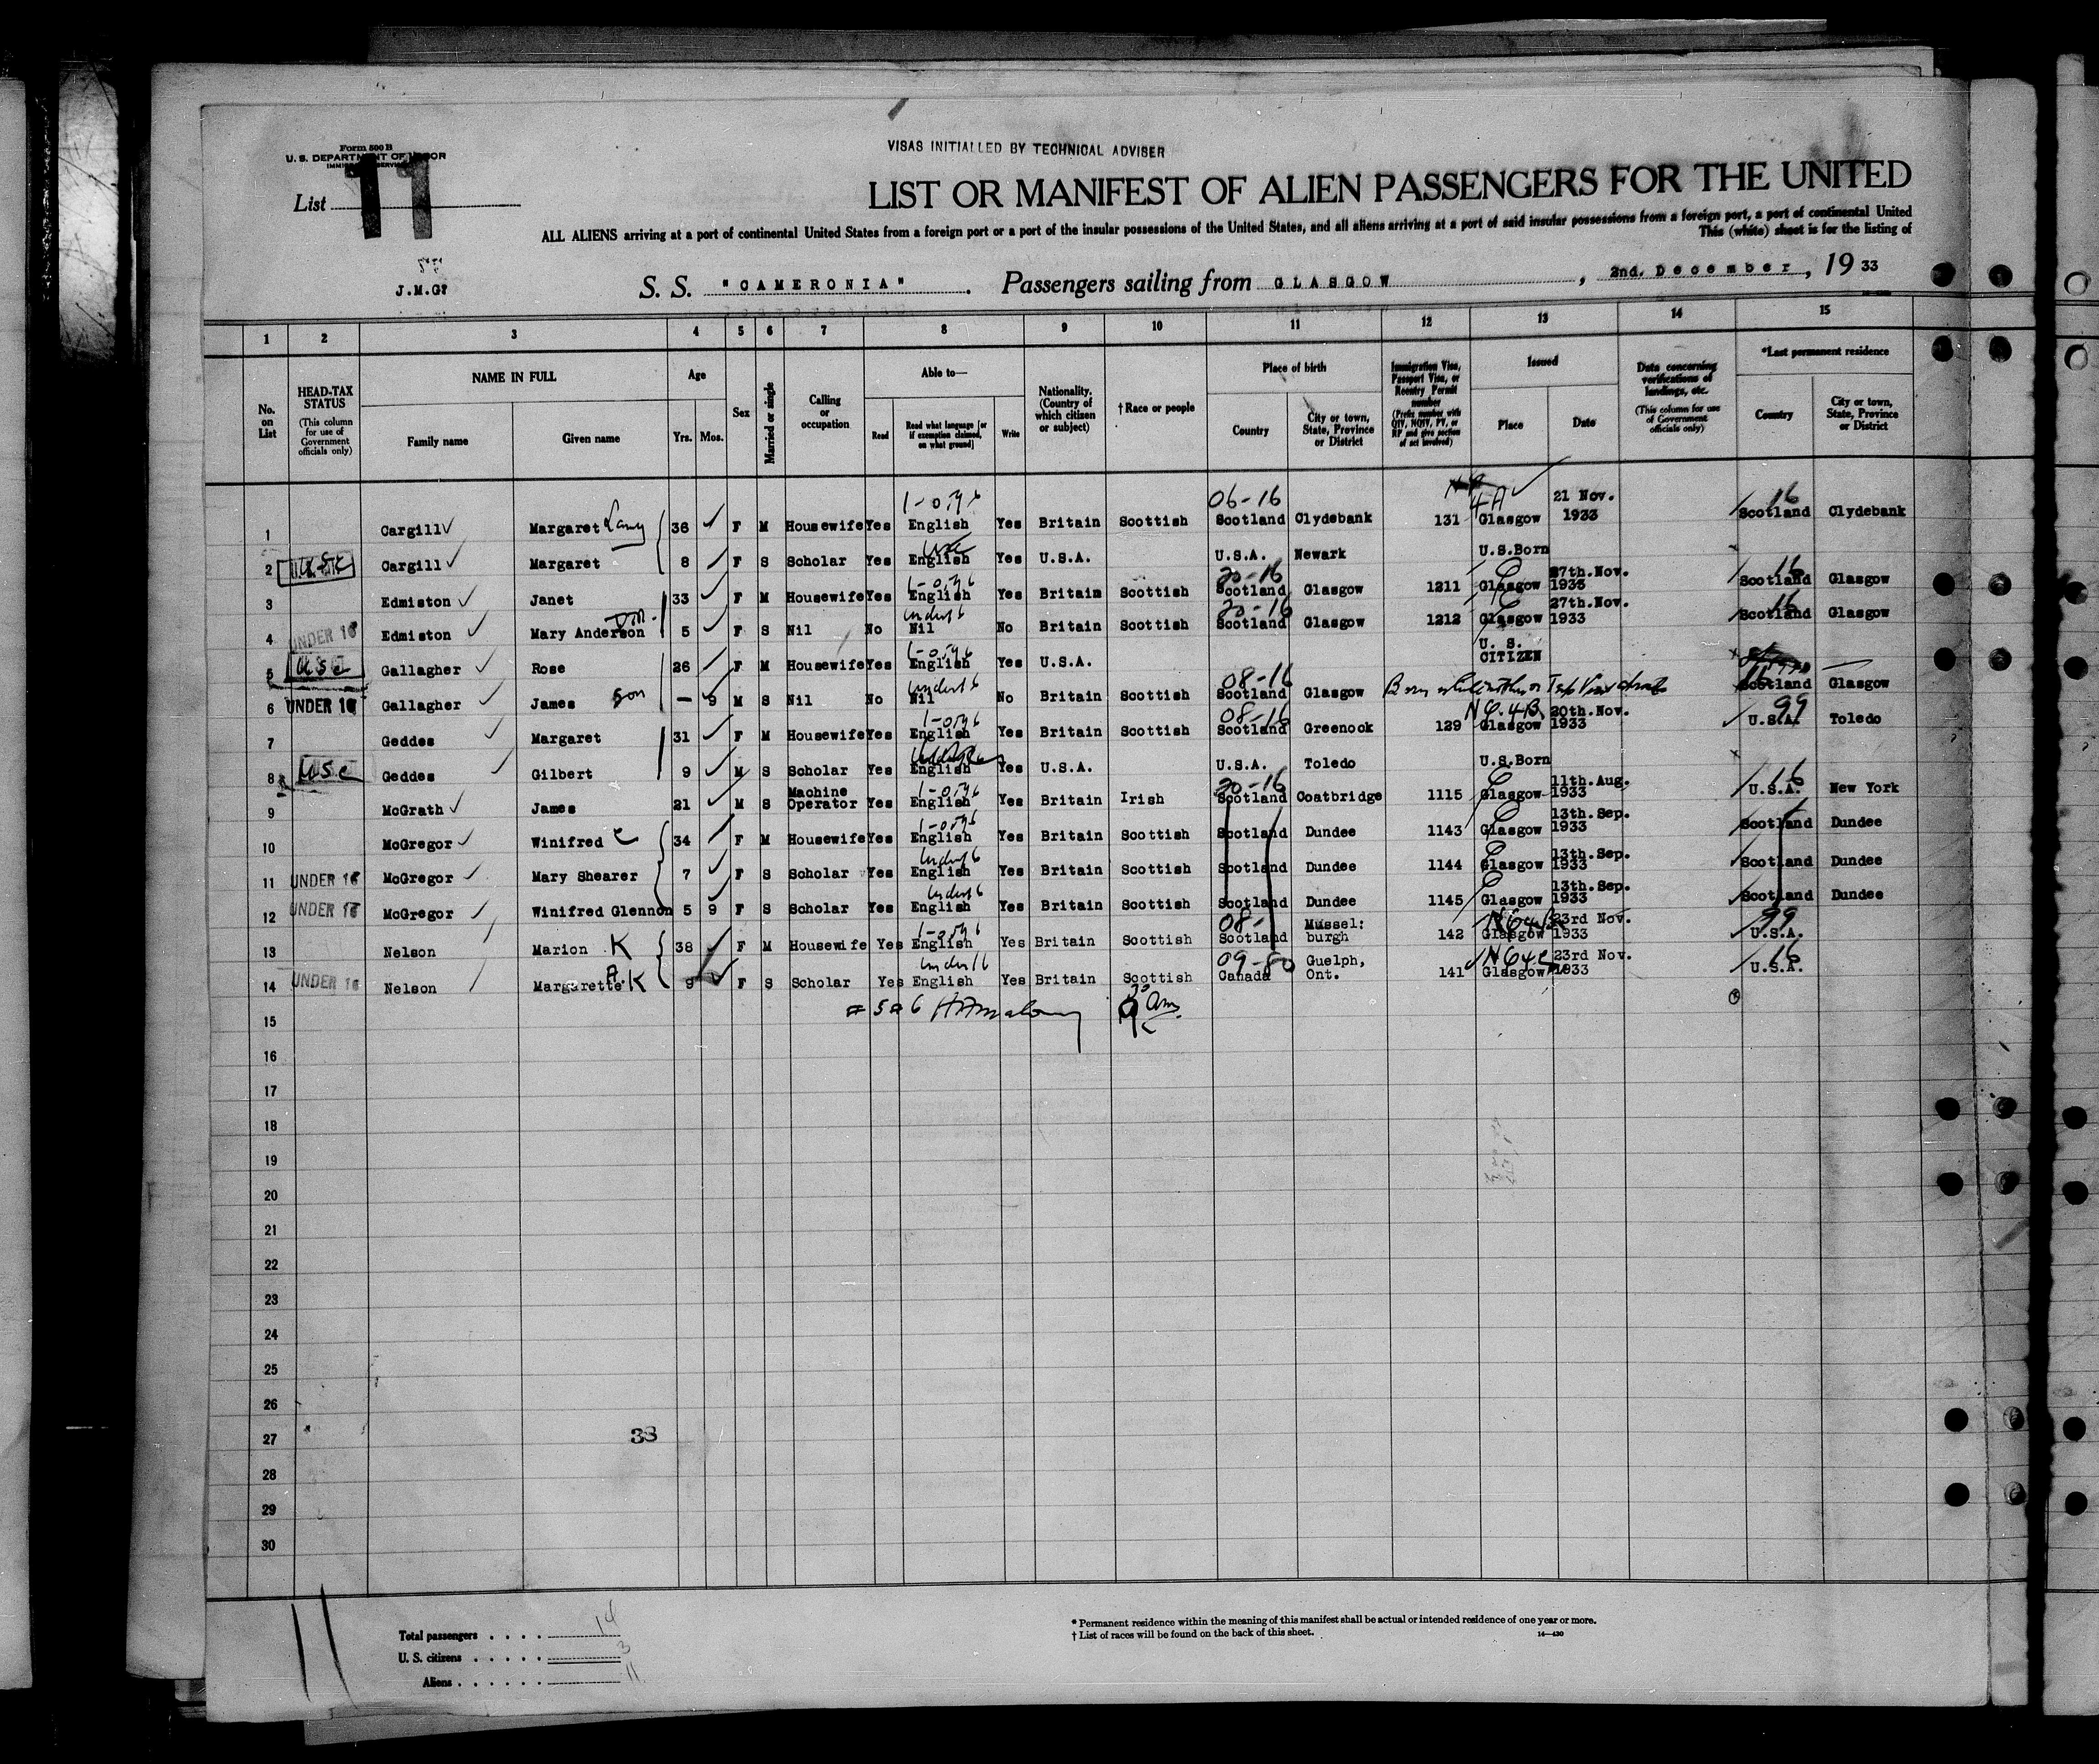 Form 500 B
U. S. DEPARTMENT OF LABOR
IMMIGRATION SERVICE
VISAS INITIALLED BY TECHNICAL ADVISER
List 11
LIST OR MANIFEST OF ALIEN PASSENGERS FOR THE UNITED
ALL ALIENS arriving at a port of continental United States from a foreign port or a port of the insular possessions of the United States, and all aliens arriving at a port of said insular possessions from a foreign port, a port of continental United
This (white) sheet is for the listing of
J.M.G?
S. S. "CAMERONIA". Passengers sailing from GLASGOW, 2nd. December, 19 33
1 2 3 4 5 6 7 8 9 10 11 12 13 14 15
No. on List
HEAD-TAX STATUS
(This column for use of Government officials only)
NAME IN FULL
Family name Given name
Age
Yrs. Mos.
Sex
Married or single
Calling or occupation
Able to—
Read Read what language [or if exemption claimed, on what ground] Write
Nationality. (Country of which citizen or subject)
† Race or people
Place of birth
Country City or town, State, Province or District
Immigration Visa, Passport Visa, or Reentry Permit number
(Prefix number with QIV, NQIV, PV, or RP and give section of act involved)
Issued
Place Date
Data concerning verifications of landings, etc.
(This column for use of Government officials only)
*Last permanent residence
Country City or town, State, Province or District
06-16 4A 21 Nov. 16
1 Cargill Margaret 36 F M Housewife Yes English Yes Britain Scottish Scotland Clydebank 131 Glasgow 1933 Scotland Clydebank
2 USC Cargill Margaret 8 F S Scholar Yes English Yes U.S.A. U.S.A. Newark U.S.Born
20-16 27th.Nov. 16
3 Edmiston Janet 33 F M Housewife Yes English Yes Britain Scottish Scotland Glasgow 1211 Glasgow 1933 Scotland Glasgow
20-16 27th.Nov. 16
4 UNDER 16 Edmiston Mary Anderson 5 F S Nil No Nil No Britain Scottish Scotland Glasgow 1212 Glasgow 1933 Scotland Glasgow
5 USC Gallagher Rose 26 F M Housewife Yes English Yes U.S.A. U. S. CITIZEN
08-16
6 UNDER 16 Gallagher James son — 9 M S Nil No Nil No Britain Scottish Scotland Glasgow Scotland Glasgow
08-16 20th.Nov. 99
7 Geddes Margaret 31 F M Housewife Yes English Yes Britain Scottish Scotland Greenock 129 Glasgow 1933 U.S.A. Toledo
8 USC Geddes Gilbert 9 M S Scholar Yes English Yes U.S.A. U.S.A. Toledo U.S.Born
20-16 11th.Aug. 16
9 McGrath James 21 M S Machine Operator Yes English Yes Britain Irish Scotland Coatbridge 1115 Glasgow 1933 U.S.A. New York
13th.Sep.
10 McGregor Winifred C 34 F M Housewife Yes English Yes Britain Scottish Scotland Dundee 1143 Glasgow 1933 Scotland Dundee
under 16 13th.Sep.
11 UNDER 16 McGregor Mary Shearer 7 F S Scholar Yes English Yes Britain Scottish Scotland Dundee 1144 Glasgow 1933 Scotland Dundee
under 16 13th.Sep.
12 UNDER 16 McGregor Winifred Glennon 5 9 F S Scholar Yes English Yes Britain Scottish Scotland Dundee 1145 Glasgow 1933 Scotland Dundee
08- 23rd Nov. 99
13 Nelson Marion K 38 F M Housewife Yes English Yes Britain Scottish Scotland Mussel: burgh 142 Glasgow 1933 U.S.A.
under 16 09-80 23rd Nov. 16
14 UNDER 16 Nelson Margarette A. K 9 F S Scholar Yes English Yes Britain Scottish Canada Guelph, Ont. 141 Glasgow 1933 U.S.A.
15
16
17
18
19
20
21
22
23
24
25
26
27 38
28
29
30
11
Total passengers . . . . 14
U. S. citizens . . . . . 3
Aliens . . . . . . 11
* Permanent residence within the meaning of this manifest shall be actual or intended residence of one year or more.
† List of races will be found on the back of this sheet.
14—430